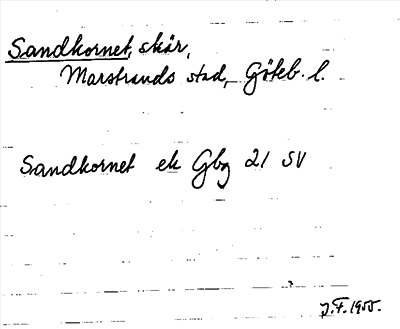 Sandkornet, skär,
Marstrands stad, Göteb. l.
Sandkornet ek Gbg 21 SV
J.F. 1955.